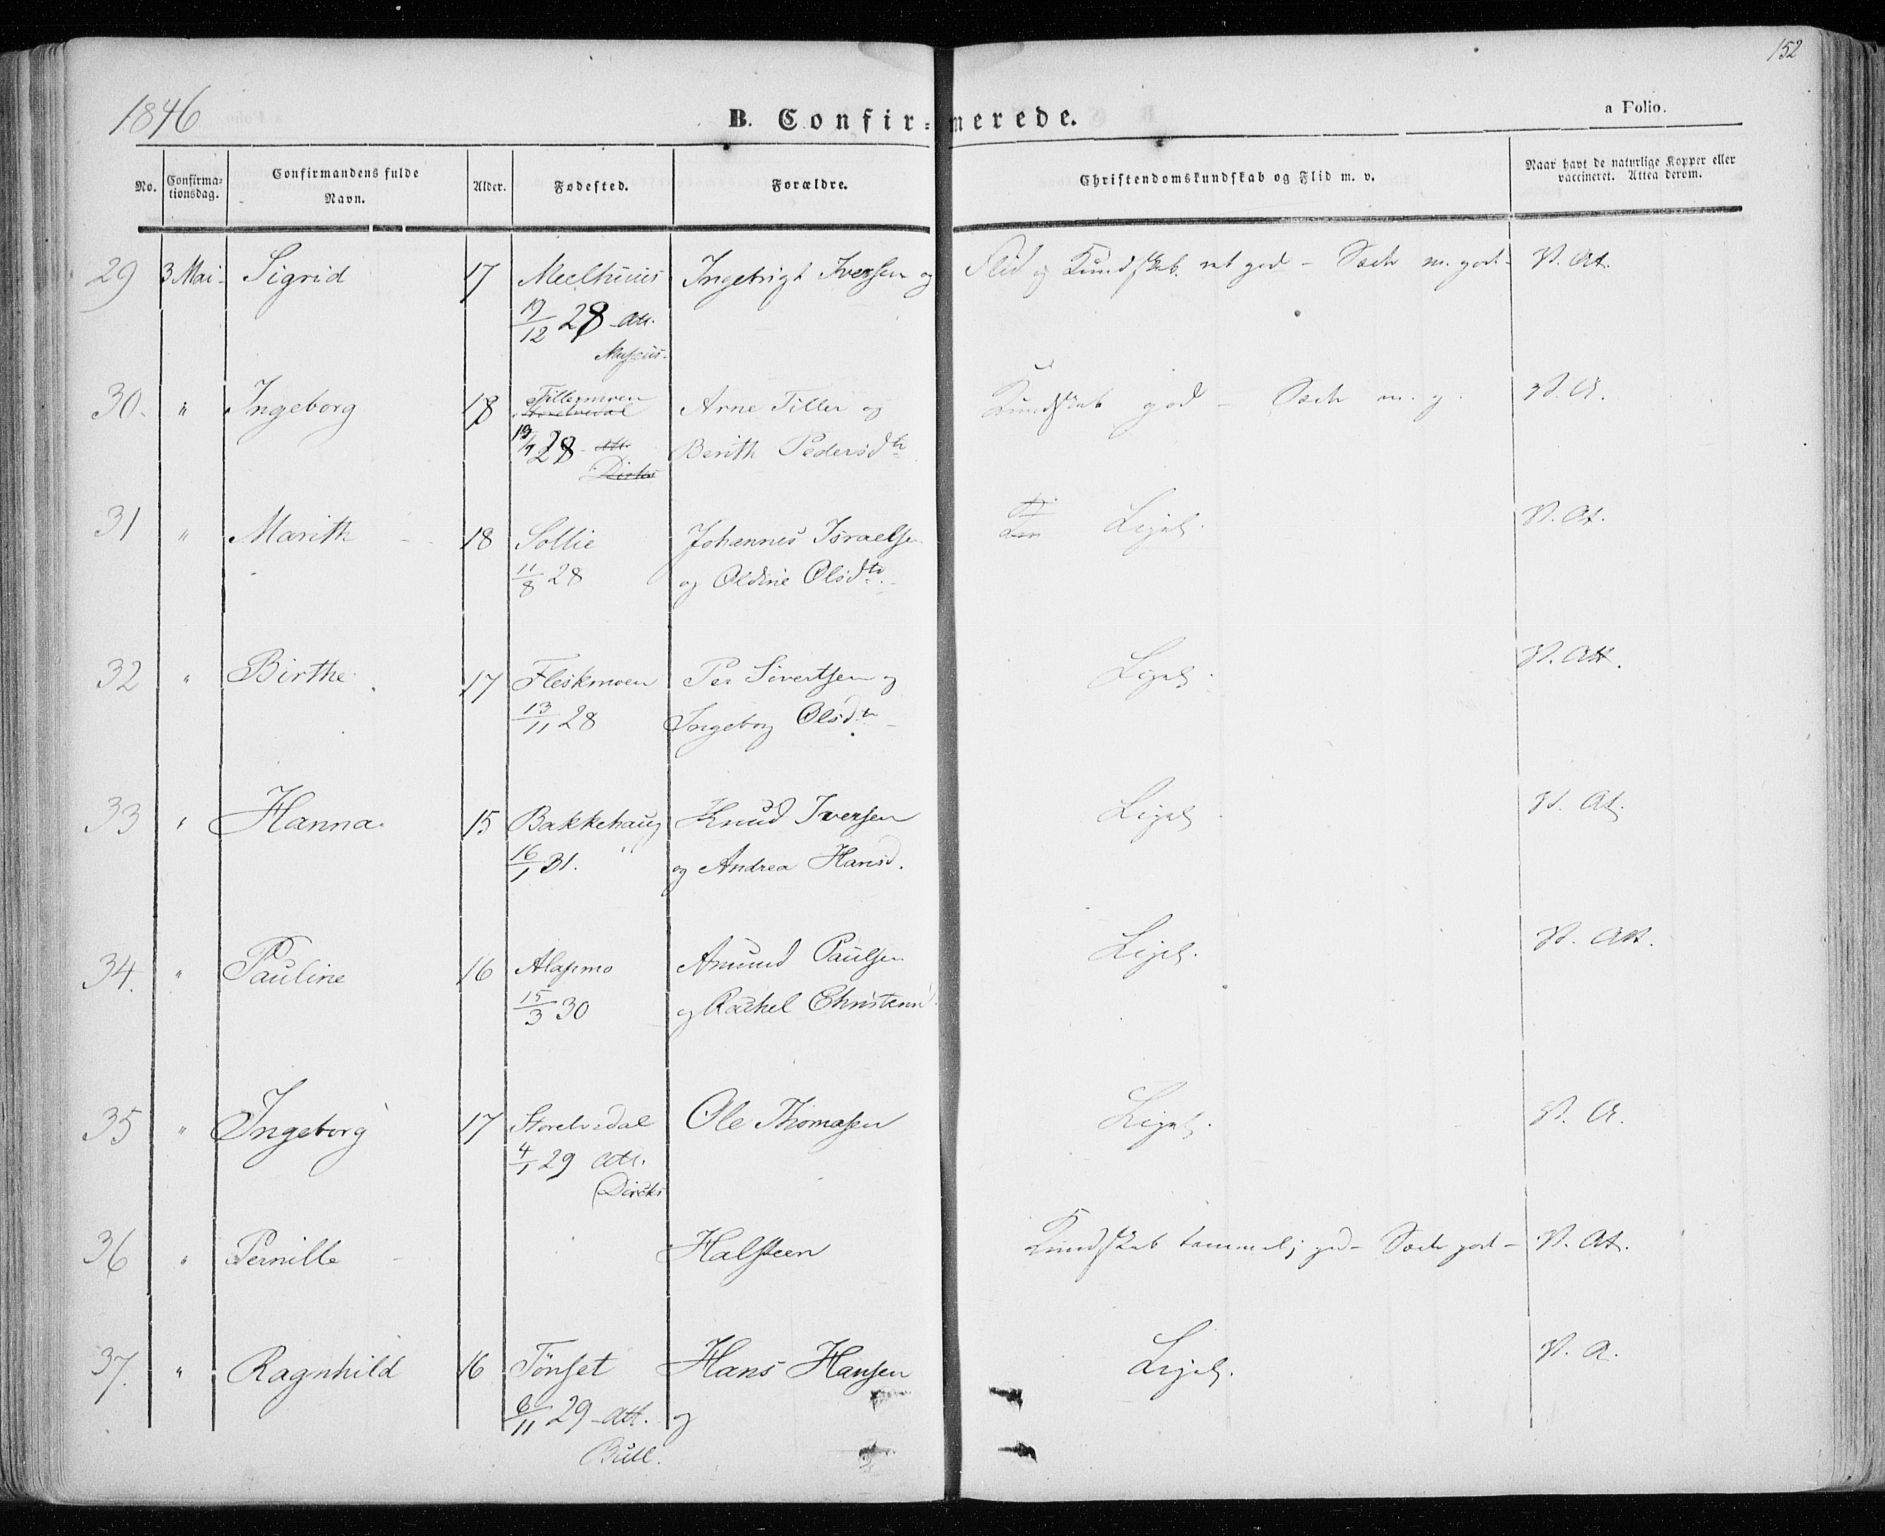 152
1846
B. Confir-merede.
a Folio.
No. Confirma-tionsdag. Confirmandens fulde Navn. Alder. Fødested. Forældre. Christendomskundskab og Flid m. v. Naar havt de naturlige Kopper eller vaccineret. Attea derom.
29 3 Mai Sigrid 17 Meelhuus Ingebrigt Iversen og Flid og Kundskab ret god – Sæder m. god – V. At.
19/12 28 – Att.
30. " Ingeborg 18 Tillermoen Arne Tiller og Kundskab god – Sæder m. g. V. A.
28 Att. Berith Pedersdtr
Dircks
31 " Marith 18 Sollie Johannes Israelse Ligel. V. At.
11/8 28 og Oldine Olsdtr.
32 " Birthe 17 Fleskmoen Per Sivertsen og Ligel. V. Att.
13/11 28 Ingeborg Olsdtr
33 " Hanna 15 Bakkehaug Knud Iversen Ligel. V. At.
16/1 31. og Andrea Hansd.
34. " Pauline 16 Alapmo Amund Paulsen Ligel. V. Att.
15/3 30 og Rachel Christensd
35 " Ingeborg 17 Storelvedal Ole Thomasen Ligel. V. A.
4/1 29 Att.
Dircks
36 " Pernille Halsteen Kundskab temmelig god – Sæder god – V. At.
37. " Ragnhild 16 Tønset Hans Hansen Ligel. V. A.
6/11 29 – Att. og
Bull.